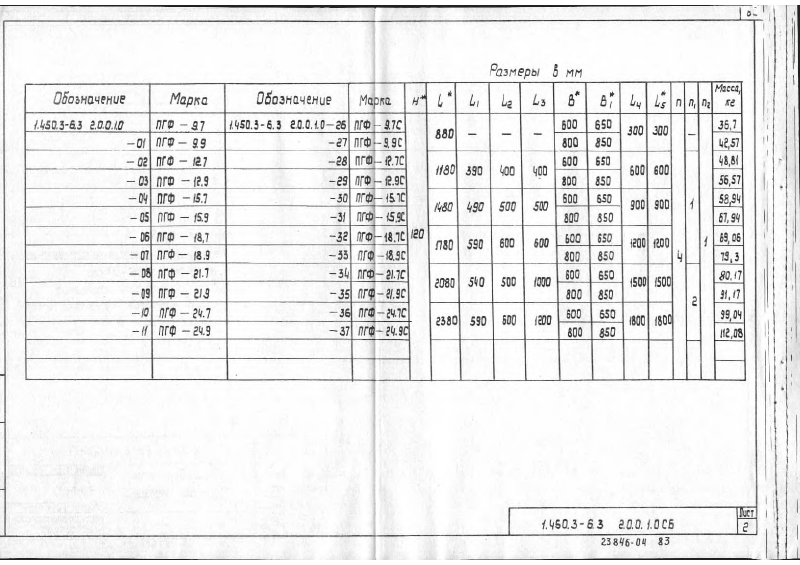 Размеры в мм
Обозначение Марка Обозначение Марка H* L* L1 L2 L3 B* B1* L4 L5* n n1 n2 Масса, кг
1.450.3-6.3 2.0.0.1.0 ПГФ – 9.7 1.450.3-6.3 2.0.0.1.0-26 ПГФ – 9.7С 120 880 – – – 600 650 300 300 4 – 1 36,7
-01 ПГФ – 9.9 -27 ПГФ – 9.9С 800 850 42,57
-02 ПГФ – 12.7 -28 ПГФ – 12.7С 1180 390 400 400 600 650 600 600 1 48,81
-03 ПГФ – 12.9 -29 ПГФ – 12.9С 800 850 56,57
-04 ПГФ – 15.7 -30 ПГФ – 15.7С 1480 490 500 500 600 650 900 900 58,94
-05 ПГФ – 15.9 -31 ПГФ – 15.9С 800 850 67,94
-06 ПГФ – 18.7 -32 ПГФ – 18.7С 1780 590 600 600 600 650 1200 1200 69,06
-07 ПГФ – 18.9 -33 ПГФ – 18.9С 800 850 79,3
-08 ПГФ – 21.7 -34 ПГФ – 21.7С 2080 540 500 1000 600 650 1500 1500 2 80,17
-09 ПГФ – 21.9 -35 ПГФ – 21.9С 800 850 91,17
-10 ПГФ – 24.7 -36 ПГФ – 24.7С 2380 590 600 1200 600 650 1800 1800 99,04
-11 ПГФ – 24.9 -37 ПГФ – 24.9С 800 850 112,08
1.450.3-6.3 2.0.0.1.0СБ
Лист
2
23846-04 83